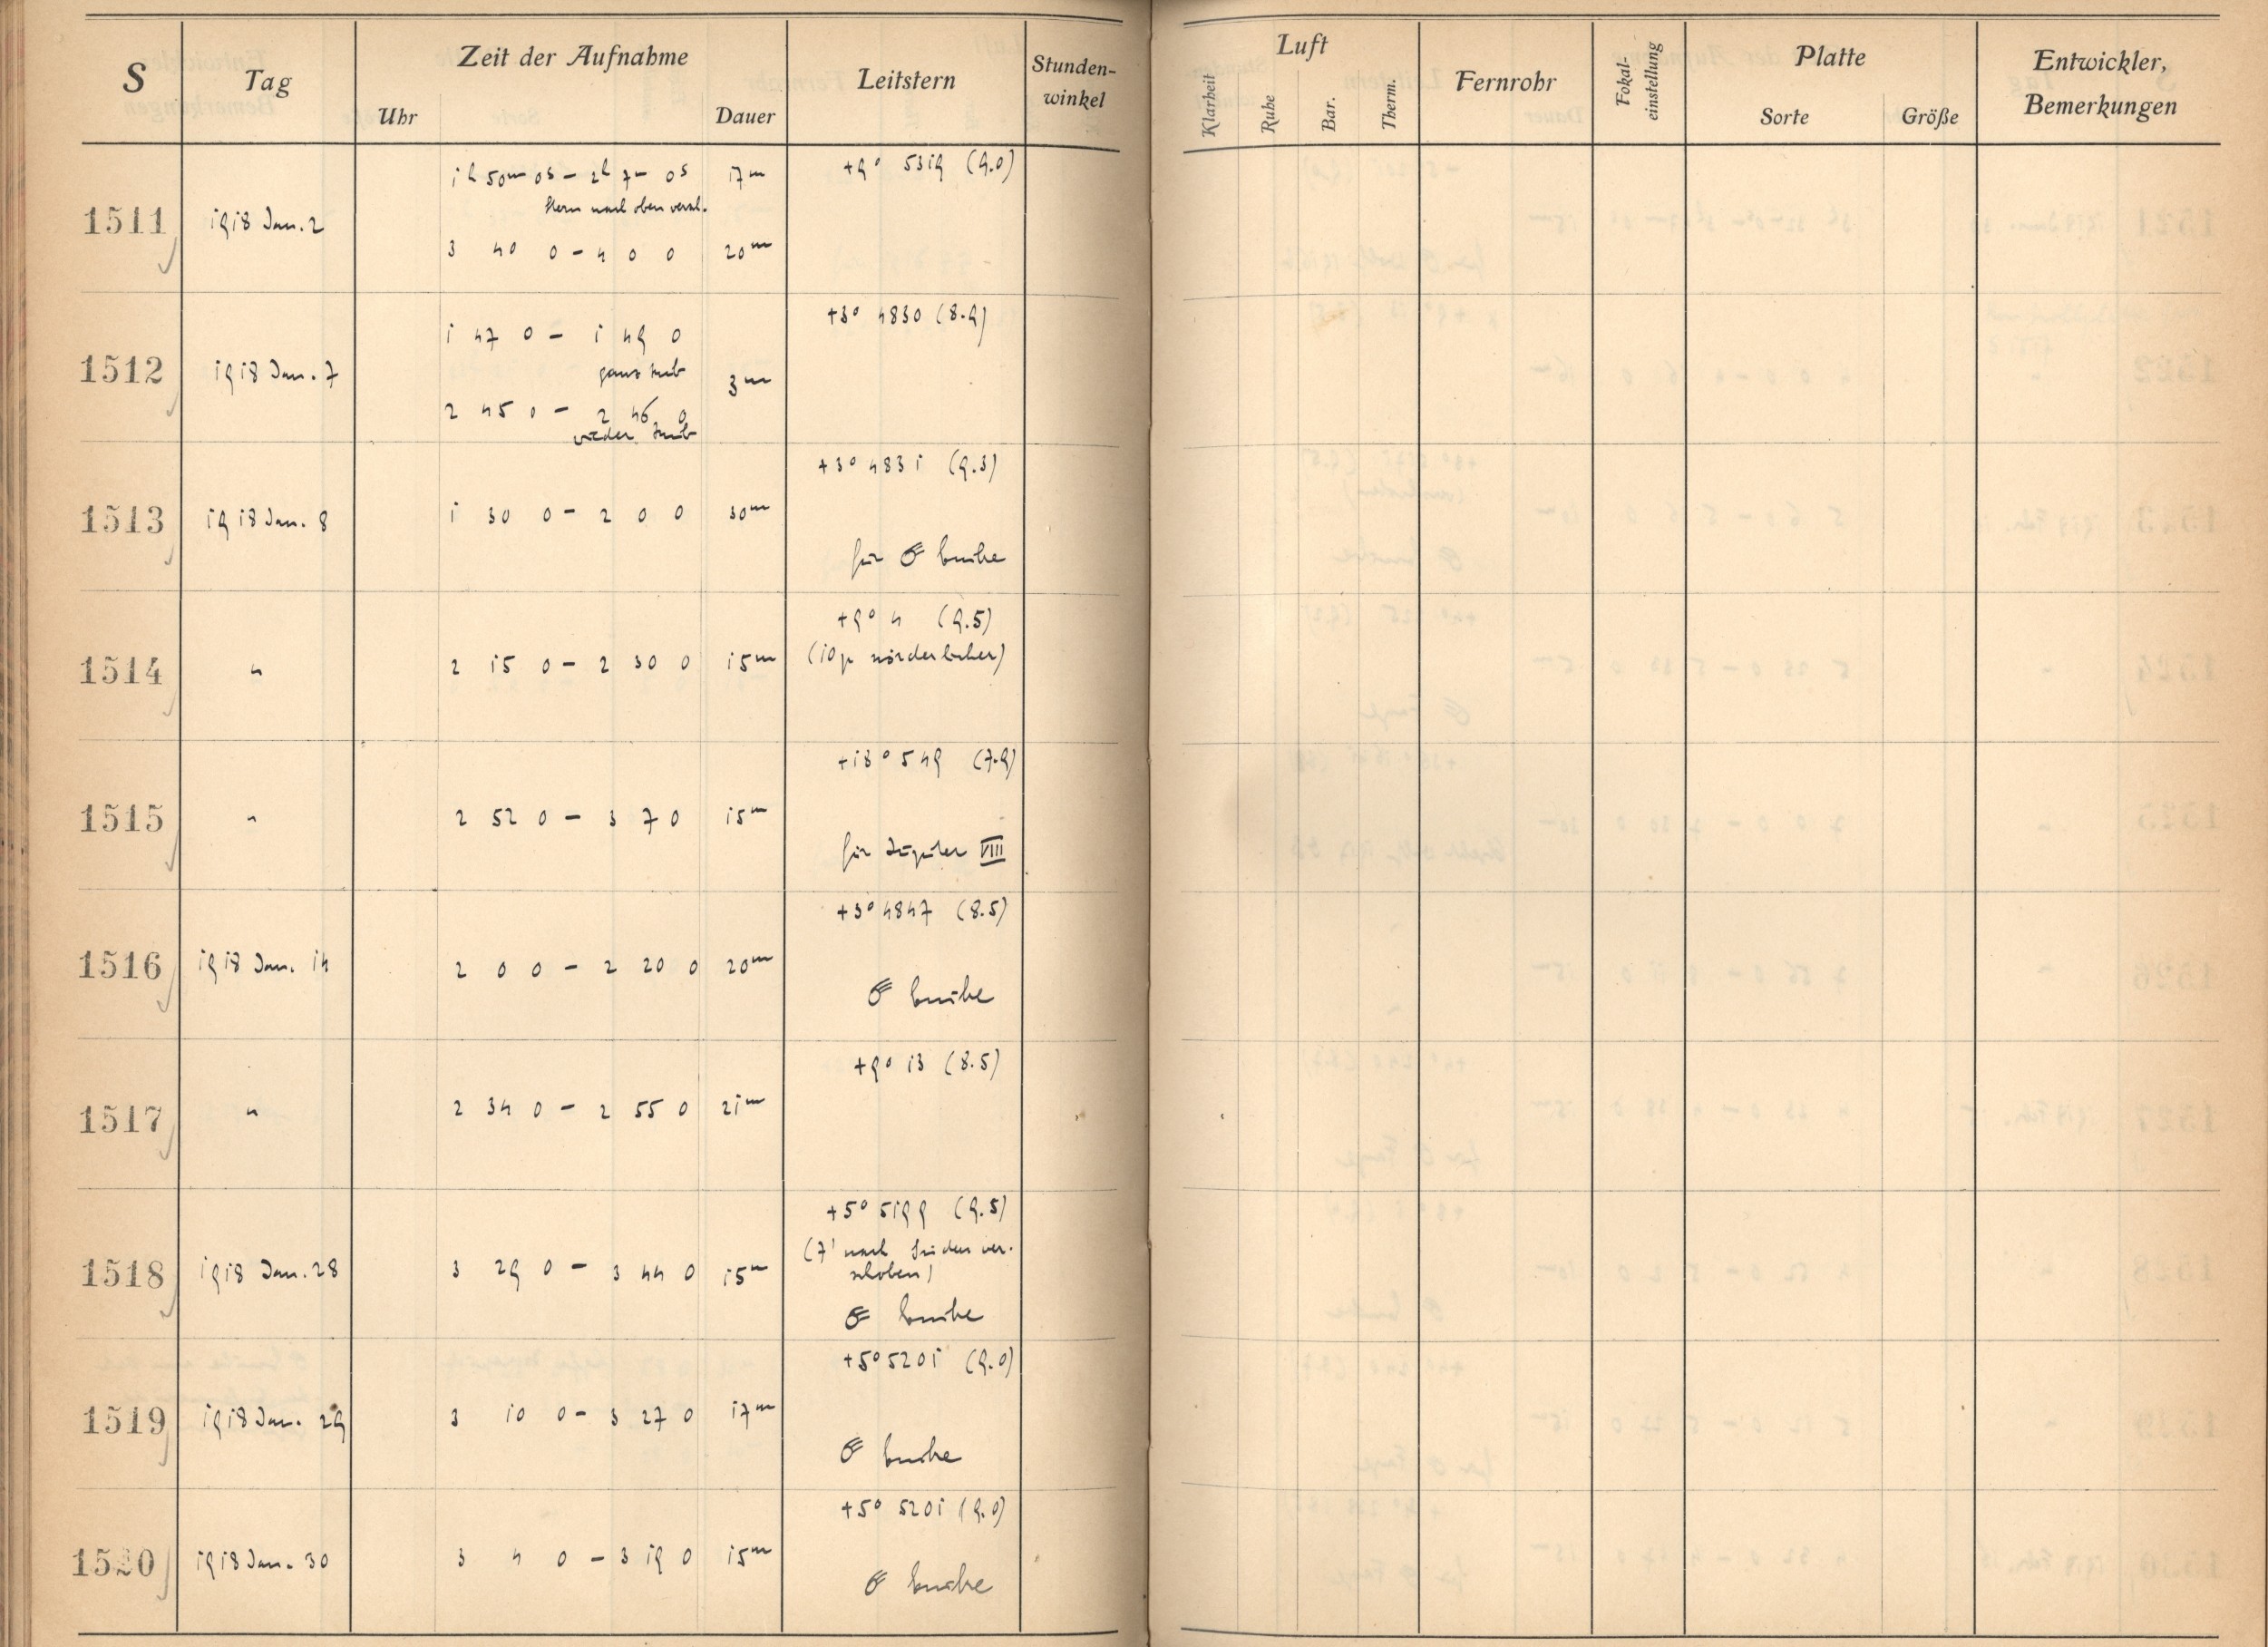 S Tag Zeit der Aufnahme Leitstern Stunden-winkel Luft Fernrohr Fokal-einstellung Platte Entwickler, Bemerkungen
Uhr Dauer Klarheit Ruhe Bar. Therm. Sorte Größe
1511 1918 Jan. 2 1h 50m 0s – 2h 7m 0s 17m +9° 5319 (9.0)
Stern nach oben versch.
3 40 0 – 4 0 0 20m
1512 1918 Jan. 7 1 47 0 – 1 49 0 3m +3° 4830 (8.9)
ganz trüb
2 45 0 – 2 46 0
wieder trüb
1513 1918 Jan. 8 1 30 0 – 2 0 0 30m +3° 4831 (9.3)
für
1514 " 2 15 0 – 2 30 0 15m +9° 4 (9.5)
(10 nördlicher)
1515 " 2 52 0 – 3 7 0 15m +18° 549 (7.9)
für Jupiter VIII
1516 1918 Jan. 14 2 0 0 – 2 20 0 20m +3° 4847 (8.5)
1517 " 2 34 0 – 2 55 0 21m +9° 13 (8.5)
1518 1918 Jan. 28 3 29 0 – 3 44 0 15m +5° 5199 (9.5)
(7' nach Süden ver-
schoben)
1519 1918 Jan. 29 3 10 0 – 3 27 0 17m +5° 5201 (9.0)
1520 1918 Jan. 30 3 4 0 – 3 19 0 15m +5° 5201 (9.0)